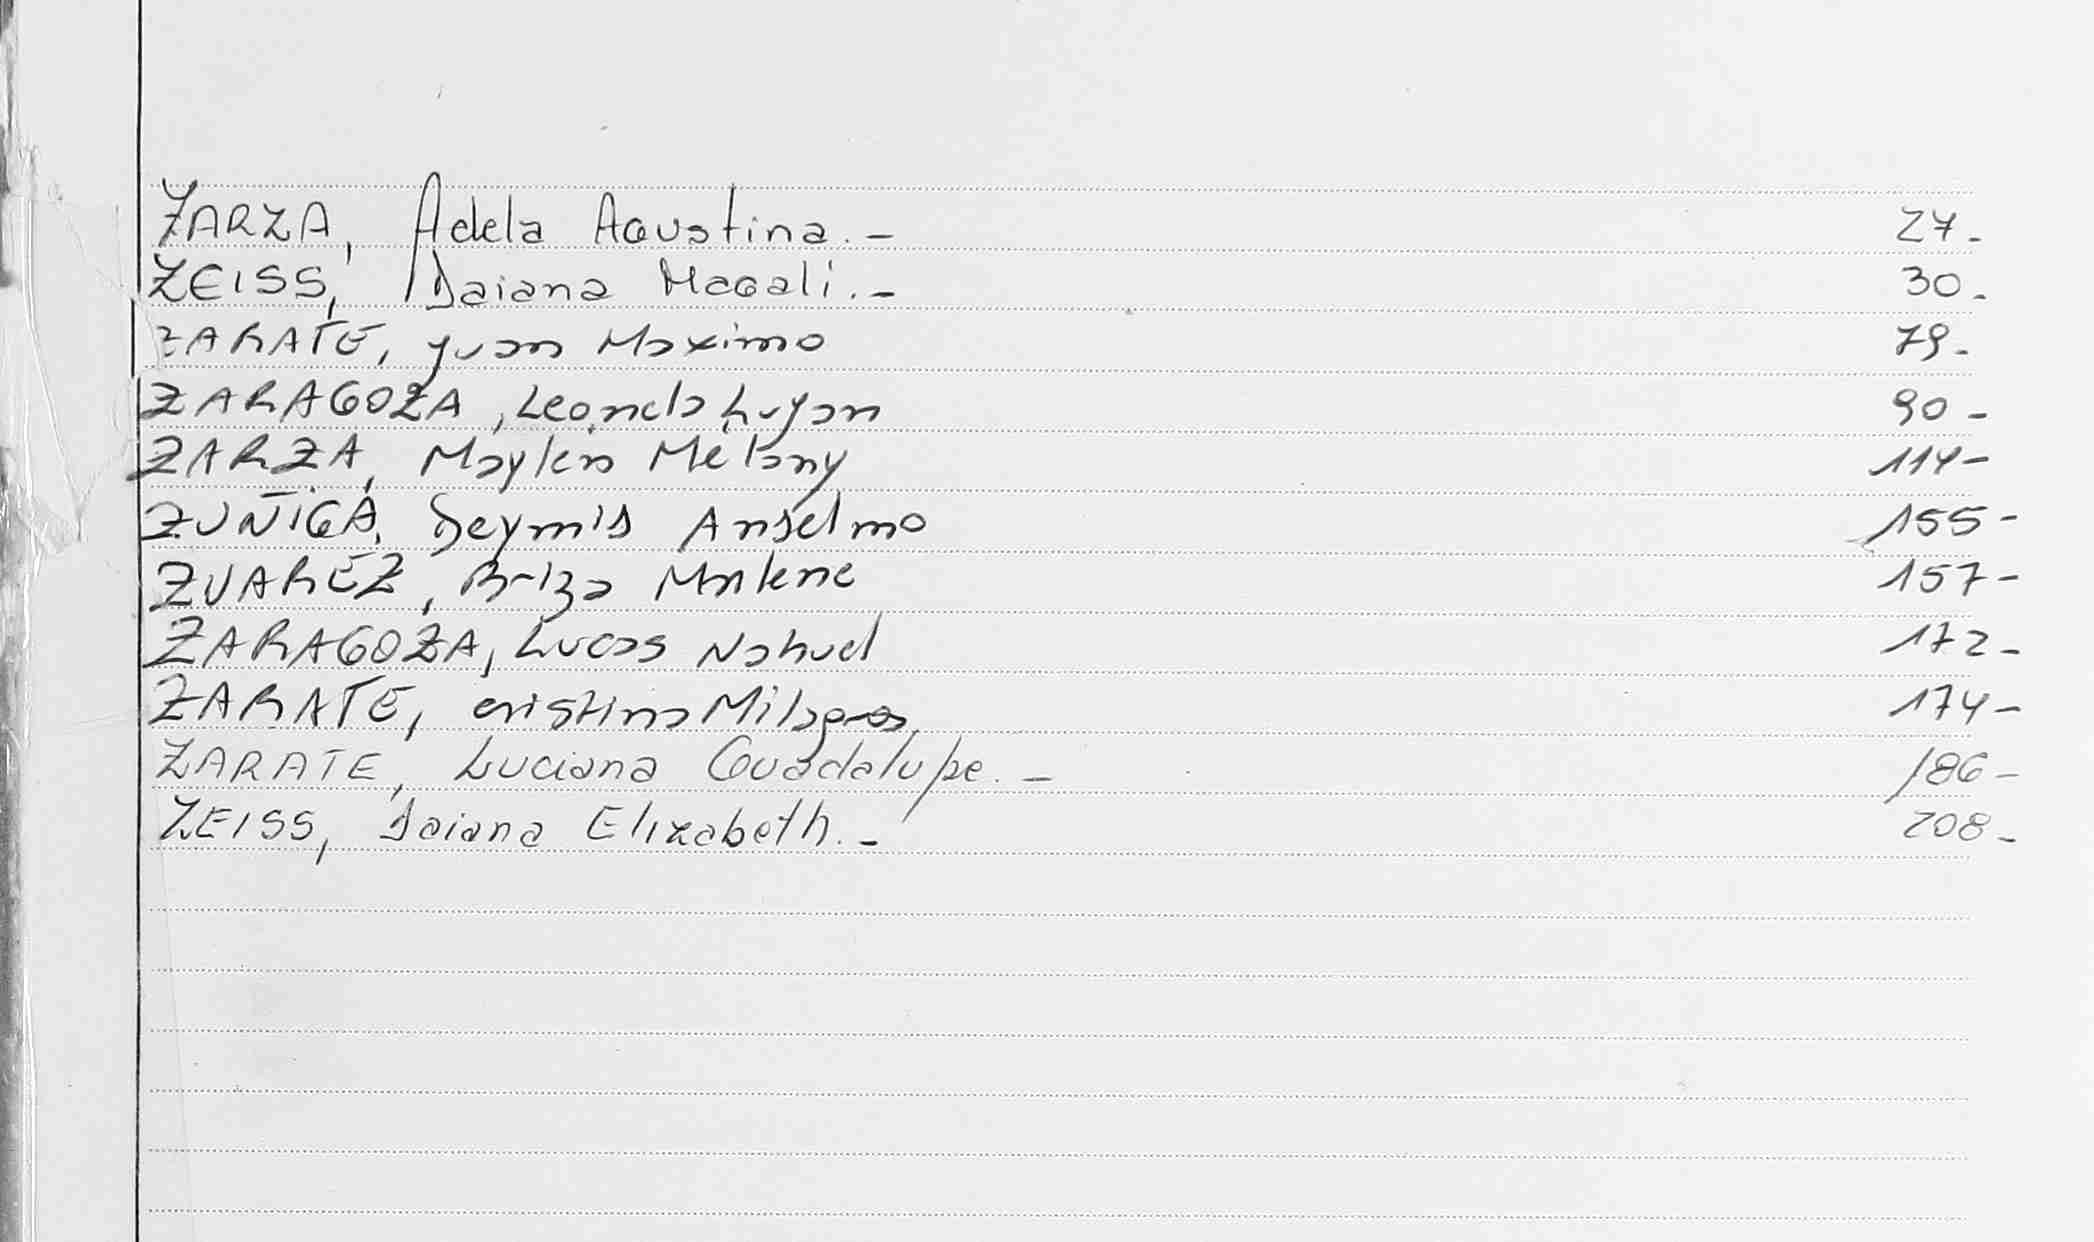 ZARZA, Adela Agustina.- 27-
ZEISS, Daiana Magali.- 30-
ZARATE, Juan Maximo 79-
ZARAGOZA, Leonela Lujan 90-
ZARZA, Maylen Melany 114-
ZUÑIGA, Deymis Anselmo 155-
ZUAREZ, Briza Marlene 157-
ZARAGOZA, Lucas Nahuel 172-
ZARATE, cristina Milagros 174-
ZARATE, Luciana Guadalupe.- 186-
ZEISS, Daiana Elizabeth.- 208-